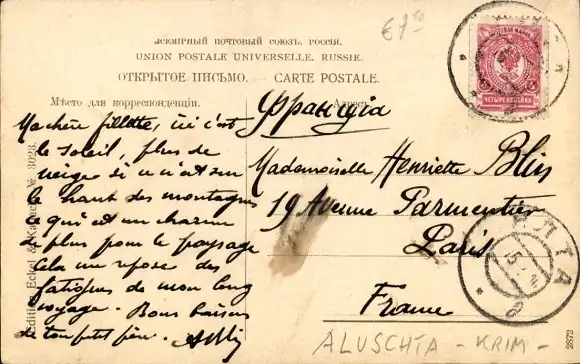 €7.50
ВСЕМІРНЫЙ ПОЧТОВЫЙ СОЮЗЪ. РОССІЯ.
UNION POSTALE UNIVERSELLE. RUSSIE.
ОТКРЫТОЕ ПИСЬМО. CARTE POSTALE.
Мѣсто для корреспонденціи.
Адресъ
Ma chère fillette, ici c'est
le soleil, plus de
neige si ce n'est sur
le haut des montagnes
ce qui est un charme
de plus pour le paysage
Cela me repose des
fatigues de mon long
voyage. Bons baisers
de ton petit père.
Франція
Mademoiselle Henriette Blin
19 Avenue Parmentier
Paris
France
ЧЕТЫРЕ КОП.
ЯЛТА
ALUSCHTA - KRIM -
Edition Eckel & Kalmar № 3023.
2872